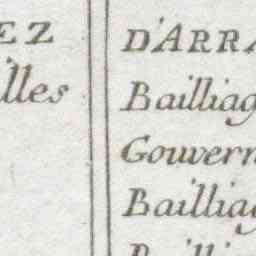 EZ
illes
D'ARRA
Bailliag
Gouvern
Bailliag
Bailli